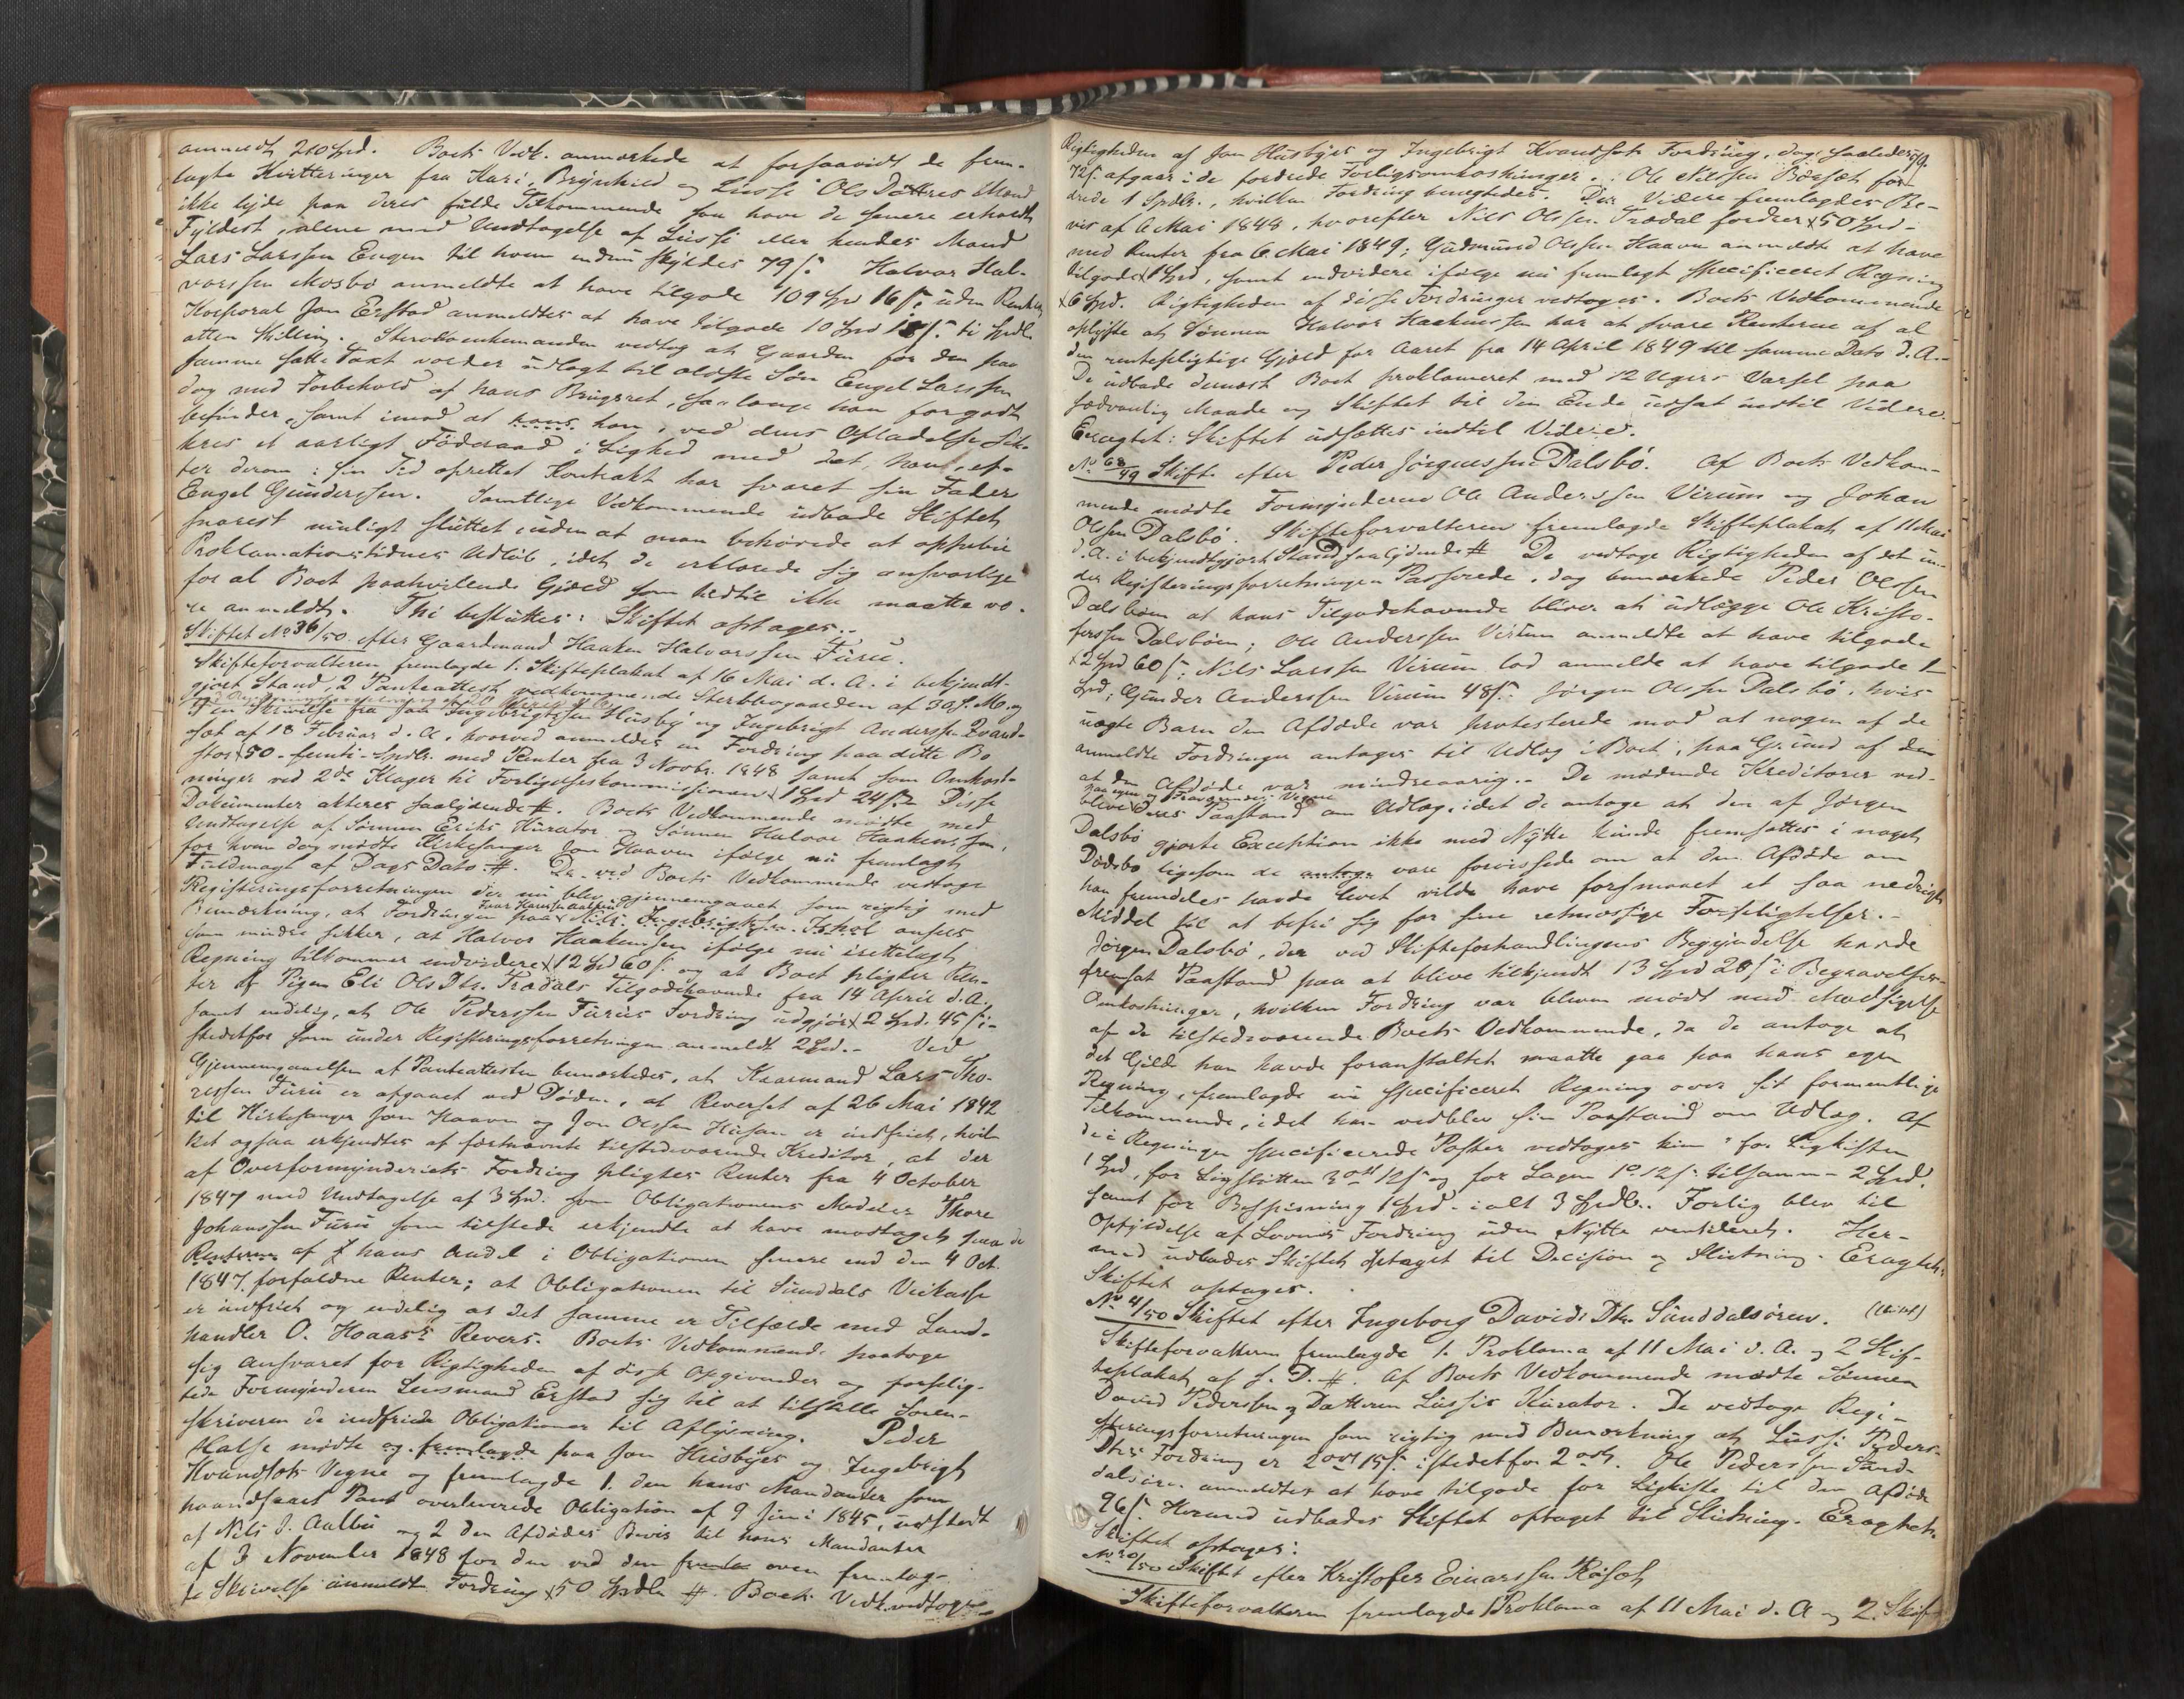 anmeldt 210 Spd. Boets Vedk. anmærkede at forsaavidt de frem-
lagte Kvitteringer fra Kari, Brynhild og Lussi Ols Døttres Mænd
ikke lyde paa deres fulde Tilkommende saa have de senere erholdt
Fyldest, alene med Undtagelse af Lussi eller hendes Mand
Lars Larssen Engen til hvem endnu skyldes 79 s. Halvor Hal-
vorssen Mosbø anmeldte at have tilgode 109 Spd 16 s. uden Renter
Korporal Jon Erstad anmeldtes at have tilgode 10 Spd 18 s. ti Spdlr
atten Skilling. Sterboenkemanden vedtog at Gaarden for den paa
samme satte Taxt vorder udlagt til ældste Søn Engel Larssen
dog med Forbehold af hans Brugsret, saalænge han for godt
befinder, samt imod at hans han, ved dens Afladelse sik-
kres et aarligt Føderaad i Lighed med det, han, ef-
ter derom i sin Tid oprettet Kontrakt har svaret sin Fader
Engel Gunderssen. Samtlige Vedkommende udbade Skiftet
snarest muligt sluttet uden at man behøvede at oppebie
Proklamationstidens Udløb, idet de erklærede sig ansvarlige
for al Boet paahvilende Gjæld som hidtil ikke maatte væ-
re anmeldt. Thi besluttes: Skiftet optages.
Skiftet No 36/50 efter Gaardmand Haaken Halvorssen Furu.
Skifteforvalteren fremlagde 1. Skifteplakat af 16 Mai d. A. i bekjendt-
gjort Stand, 2 Panteattest vedkommende Sterbbogaarden af 30 f. M. og
en Skrivelse fra Jon Ingebrigtssen Husby og Ingebrigt Anderssen Kvand-
sæt af 18 Februar d. A., hvorved anmeldes en Fordring paa dette Bo
stor 50 - femti - Spdlr. med Renter fra 3 Novbr. 1848 samt som Omkost-
ninger ved 2de Klager til Forligelseskommissionen 1 Spd 24 s. Disse
Dokumenter akteres saalydende #. Boets Vedkommende mødte med
Undtagelse af Sønnen Eriks Kurator og Sønnen Halvor Haakenssen,
for hvem dog mødte Kirkesanger Jon Haaven ifølge nu fremlagt
Fuldmagt af Dags Dato #. De ved Boets Vedkommende vedtoge
Registreringsforretningen der nu blev gjennemgaaet som rigtig med
Bemærkning, at Fordringen paa Nils Ingebrigtssen ansees
som mindre sikker, at Halvor Haakenssen ifølge nu irettelagt
Regning tilkommer endvidere 12 Spd 60 s. og at Boet pligter Ren-
ter af Pigen Eli Ols Dtr. Trædals Tilgodehavende fra 14 April d. A.
samt endelig, at Ole Pederssen Furus Fordring udgjør 2 Spd. 45 s. i-
stedetfor som under Registreringsforretningen anmeldt 2 Spd. - Ved
Gjennemgaaelsen af Panteattesten bemærkedes, at Kaarmand Lars Tho-
ressen Furu er afgaaet ved Døden, at Reverset af 26 Mai 1842
til Kirkesanger Jon Haaven og Jon Olssen Husan er indfriet, hvil-
ket ogsaa erkjendtes af førstnævnte tilstedeværende Kreditor, at der
af Overformynderiets Fordring pligtes Renter fra 4 October
1847 med Undtagelse af 3 Spd. som Obligationens Medeier Thore
Johanssen Furu som tilstede erkjendte at have modtaget paa de
Renterne af hans Andel i Obligationen senere end den 4 Oct.
1847 forfaldne Renter; at Obligationen til Sunddals Veikasse
er indfriet og endelig at det samme er Tilfælde med Land-
handler O. Hoaas's Revers. Boets Vedkommende paatoge
sig Ansvaret for Rigtigheden af disse Opgivender og forplig-
tede Formynderen Lensmand Erstad sig til at tilstille Soren-
skriveren de indfriede Obligationer til Aflysning. Peder
Halse mødte og fremlagde paa Jon Husbyes og Ingebrigt
Kvandsæts Vegne og fremlagde 1. den hans Mandanter som
haandfaaet Pant overleverede Obligation af 9 Juni 1845, udstedt
af Nils J. Aalbu og 2 den Afdødes Bevis til hans Mandanter
af 3 November 1848 for den ved den oven fremlag-
te Skrivelse anmeldte Fordring 50 Spdlr #. Boets Vedk. vedtoge
Rigtigheden af Jon Husbyes og Ingebrigt Kvandsæts Fordring, dog saaledes at
72 s. afgaar i de fordrede Forligsomkostninger. Ole Nilssen Børsæt for-
drede 1 Spdlr., hvilken Fordring benægtedes. Der Videre fremlagdes Be-
vis af 6 Mai 1848, hvorefter Nils Olssen Trædal fordrer 50 Spd.
med Renter fra 6 Mai 1849; Gudmund Olssen Haaven anmeldte at have
tilgode 1 Spd, samt endvidere ifølge nu fremlagt specificeret Regning
6 Spd. Rigtigheden af disse Fordringer vedtoges. Boets Vedkommende
oplyste at Sønnen Halvor Haakenssen har at svare Renterne af al
den rentepligtige Gjæld for Aaret fra 14 April 1849 til samme Dato d. A.
De udbade dernæst Boet proklameret med 12 Ugers Varsel paa
sædvanlig Maade og Skiftet til den Ende udsat indtil Videre.
Eragtet: Skiftet udsættes indtil Videre.
No 68/49 Skifte efter Peder Jørgenssen Dalsbø. Af Boets Vedkom-
mende mødte Formynderne Ole Anderssen Virum og Johan
Olssen Dalsbø. Skifteforvalteren fremlagde Skifteplakat af 11 Mai
d. A. i bekjendtgjort Stand saalydende # De vedtoge Rigtigheden af det un-
der Registreringsforretningen Passerede, dog bemærkede Peder Olssen
Dalsbøen at hans Tilgodehavende bliver at udlægge Ole Kristo-
ferssen Dalsbøen; Ole Anderssen Virum anmeldte at have tilgode
2 Spd 60 s.; Nils Larssen Virum lod anmelde at have tilgode 1
Spd; Gunder Anderssen Virum 48 s. Jørgen Olssen Dalsbø, hvis
uægte Barn den Afdøde var protesterede mod at nogen af de
anmeldte Fordringer antages til Udlæg i Boet, paa Grund af den
at den Afdøde var mindreaarig. - De mødende Kreditorer ved-
paa egne og Fraværendes Vegne
bleve deres Paastand om Udlæg, idet de antoge at den af Jørgen
Dalsbø gjorte Exception ikke med Nytte kunde fremsættes i noget
Dødsbo ligesom de antoge vare forvissede om at den Afdøde om
han fremdeles havde levet vilde have forsmaaet et saa nedrigt
Middel til at befri sig for sine retmæssige Forpligtelser. -
Jørgen Dalsbø, der ved Skifteforhandlingens Begyndelse havde
fremsat Paastand paa at blive tilkjendt 13 Spd 20 s i Begravelses-
Omkostninger, hvilken Fordring var bleven mødt med Modsigelse
af de tilstedeværende Boets Vedkommende, da de antoge at
det Gilde han havde foranstaltet maatte gaa paa hans egen
Regning, fremlagde nu specificeret Regning over sit formentlige
Tilkommende, idet han vedblev sin Paastand om Udlæg. Af
de i Regningen specificerede Poster vedtoges kun: for Ligkisten
1 Spd, for Ligskiøtten 3 ort 12 s og for Lagen 1 o 12 s: tilsammen 2 Spd,
samt for Bespisning 1 Spd. ialt 3 Spdlr. Forlig blev til
Opfyldelse af Lovens Fordring uden Nytte ventileret. Her-
med udbades Skiftet optaget til Decision og Slutning. Eragtet:
Skiftet optages.
No 4/50 Skiftet efter Ingeborg Davids Dtr. Sunddalsøren.
Skifteforvalteren fremlagde 1. Proklama af 11 Mai d. A. og 2 Skif-
teplakat af s. D. #. Af Boets Vedkommende mødte Sønnen
David Pederssen og Datteren Lussis Kurator. De vedtoge Regi-
streringsforretningen som rigtig med Bemærkning at Lussi Peders-
Dtrs Fordring er 2 ort 15 s. istedetfor 2 ort. Ole Pederssen Sund-
dalsøren anmeldtes at have tilgode for Ligkiste til den Afdøde
96 s. Hermed udbades Skiftet optaget til Slutning. Eragtet:
Skiftet optages:
No 30/50 Skiftet efter Kristofer Einarssen
Skifteforvalteren fremlagde 1 Proklama af 11 Mai d. A og 2. Skif-